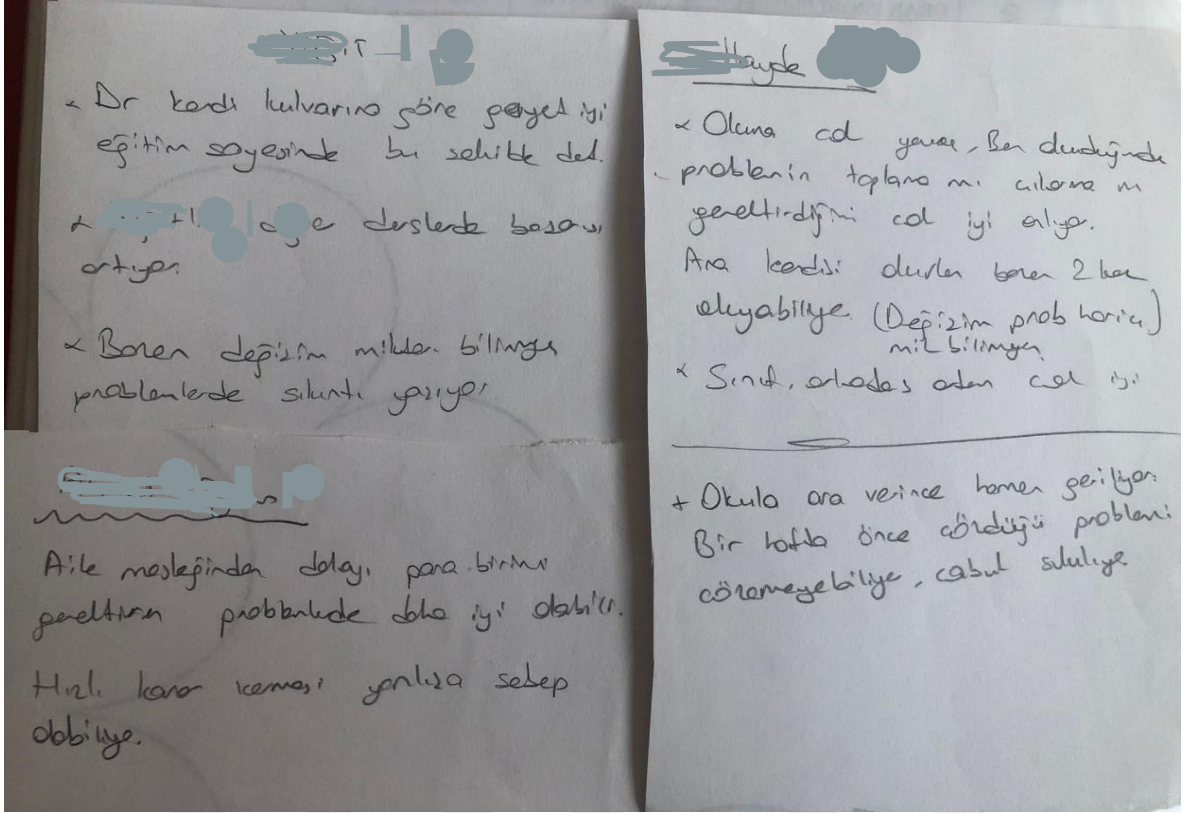 Dr kendi kulvarına göre gayet iyi
eğitim sayesinde bu
derslerde başarısı
artıyor.
Bazen değişim bilinmeyen
problemlerde sıkıntı yaşıyor.
Aile mesleğinden dolayı para birimi
gerektiren problemlerde daha iyi olabilir.
Hızlı karar vermesi yanlışa sebep
olabiliyor.
Okuma çok yavaş, Ben okuduğumda
problemin toplama mı çıkarma mı
gerektirdiğini çok iyi anlıyor.
Ama kendisi bazen 2 kez
okuyabiliyor. (Değişim prob hariç)
bilinmeyen
Sınıf, arkadaş çok iyi
+ Okula ara verince hemen geriliyor.
Bir hafta önce çözdüğü problemi
çözemeyebiliyor, çabuk sıkılıyor